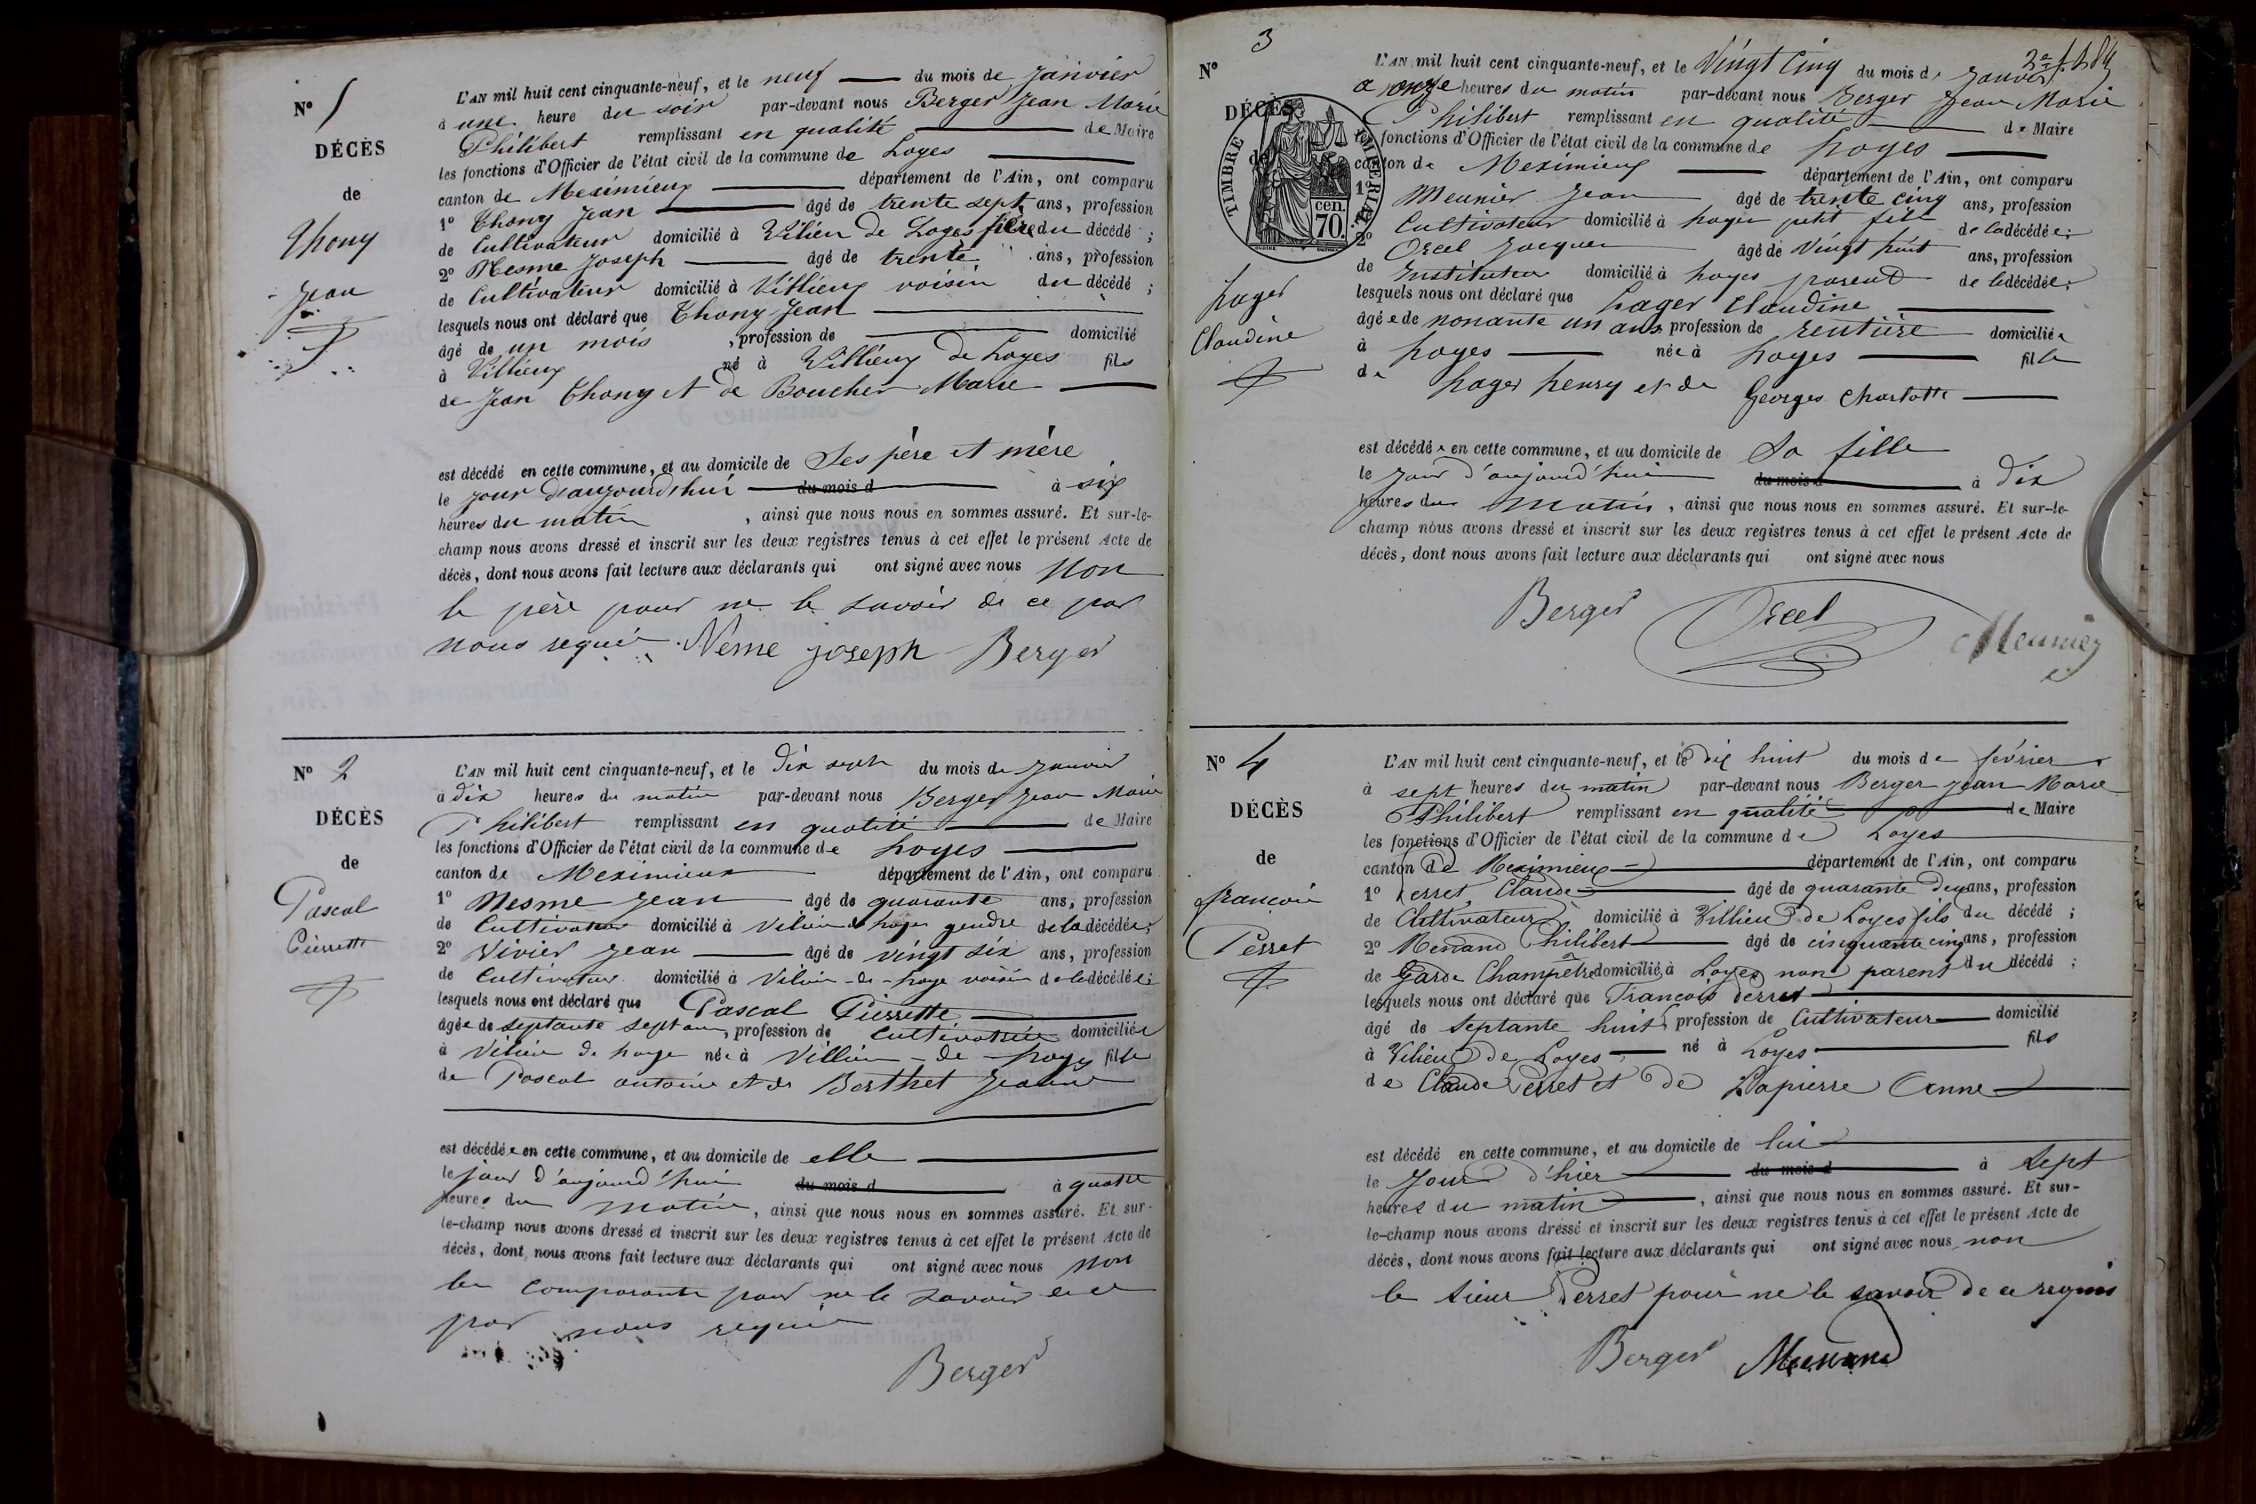 N° 1
DÉCÈS
de
Thony
Jean
L'AN mil huit cent cinquante-neuf, et le neuf du mois de Janvier
à une heure du soir par-devant nous Berger Jean Marie
Philibert remplissant en qualité de Maire
les fonctions d'Officier de l'état civil de la commune de Loyes
canton de Meximieux département de l'Ain, ont comparu
1° Thony Jean âgé de trente sept ans, profession
de Cultivateur domicilié à Vilieu de Loyes père du décédé ;
2° Nesme Joseph âgé de trente ans, profession
de Cultivateur domicilié à Villieux voisin du décédé ;
lesquels nous ont déclaré que Thony Jean
âgé de un mois, profession de domicilié
à Villieux né à Villieux de Loyes fils
de Jean Thony et de Boucher Marie
est décédé en cette commune, et au domicile de Ses père et mère
le jour d'aujourd'hui du mois d à six
heures du matin, ainsi que nous nous en sommes assuré. Et sur-le-
champ nous avons dressé et inscrit sur les deux registres tenus à cet effet le présent Acte de
décès, dont nous avons fait lecture aux déclarants qui ont signé avec nous non
le père pour ne le savoir de ce par
nous requis. Neme joseph Berger
N° 2
DÉCÈS
de
Pascal
Pierrette
L'AN mil huit cent cinquante-neuf, et le dix sept du mois de Janvier
à dix heures du matin par-devant nous Berger Jean Marie
Philibert remplissant en qualité de Maire
les fonctions d'Officier de l'état civil de la commune de Loyes
canton de Meximieux département de l'Ain, ont comparu
1° Nesme Jean âgé de quarante ans, profession
de Cultivateur domicilié à Vilieu de Loyes gendre de la décédée ;
2° Vivier Jean âgé de vingt six ans, profession
de Cultivateur domicilié à Vilieu-de-Loye voisin de la décédée ;
lesquels nous ont déclaré que Pascal Pierrette
âgée de septante sept ans, profession de Cultivatrice domiciliée
à Vilieu de Loye née à Villieu-de-Loyes fille
de Pascal antoine et de Berthet Jeanne
est décédée en cette commune, et au domicile de elle
le jour d'aujourd'hui du mois d à quatre
heures du matin, ainsi que nous nous en sommes assuré. Et sur-
le-champ nous avons dressé et inscrit sur les deux registres tenus à cet effet le présent Acte de
décès, dont nous avons fait lecture aux déclarants qui ont signé avec nous non
les comparants pour ne le savoir de ce
par nous requis
Berger
N° 3
DÉCÈS
de
TIMBRE IMPERIAL
70 cen.
Loyer
Claudine
L'AN mil huit cent cinquante-neuf, et le Vingt Cinq du mois d Janvier
à onze heures du matin par-devant nous Berger Jean Marie
Philibert remplissant en qualité de Maire
les fonctions d'Officier de l'état civil de la commune de Loyes
canton de Meximieux département de l'Ain, ont comparu
1° Meunier Jean âgé de trente cinq ans, profession
Cultivateur domicilié à Loyes petit fils de la décédée ;
2° Orcel Jacques âgé de Vingt huit ans, profession
de Instituteur domicilié à Loyes parent de la décédée ;
lesquels nous ont déclaré que Lager Claudine
âgée de nonante un ans profession de rentière domiciliée
à Loyes née à Loyes fille
de Lager henry et de Georges Charlotte
est décédée en cette commune, et au domicile de Sa fille
le jour d'aujourd'hui du mois d à dix
heures du matin, ainsi que nous nous en sommes assuré. Et sur-le-
champ nous avons dressé et inscrit sur les deux registres tenus à cet effet le présent Acte de
décès, dont nous avons fait lecture aux déclarants qui ont signé avec nous
Berger Orcel Meunier
N° 4
DÉCÈS
de
françois
Perret
L'AN mil huit cent cinquante-neuf, et le dix huit du mois de février
à sept heures du matin par-devant nous Berger Jean Marie
Philibert remplissant en qualité de Maire
les fonctions d'Officier de l'état civil de la commune de Loyes
canton de Meximieux département de l'Ain, ont comparu
1° Perret, Claude âgé de quarante deux ans, profession
de Cultivateur domicilié à Villieu de Loyes fils du décédé ;
2° Philibert âgé de cinquante cinq ans, profession
de Garde Champêtre domicilié à Loyes non parent du décédé ;
lesquels nous ont déclaré que François Perret
âgé de Septante huit, profession de Cultivateur domicilié
à Vilieu de Loyes né à Loyes fils
de Claude Perret et de Lapierre Anne
est décédé en cette commune, et au domicile de lui
le Jour d'hier du mois d à Sept
heures du matin, ainsi que nous nous en sommes assuré. Et sur-
le-champ nous avons dressé et inscrit sur les deux registres tenus à cet effet le présent Acte de
décès, dont nous avons fait lecture aux déclarants qui ont signé avec nous non
le Sieur Perret pour ne le savoir de ce requis
Berger